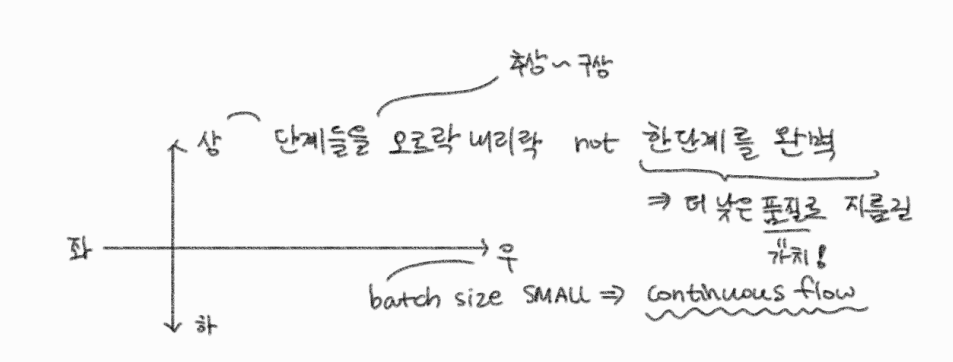 추상~구상
상 단계들을 오르락 내리락 not 한단계를 완벽
⇒ 더 낮은 품질로 지름길
좌 우
"가치!
batch size SMALL ⇒ continuous flow
하